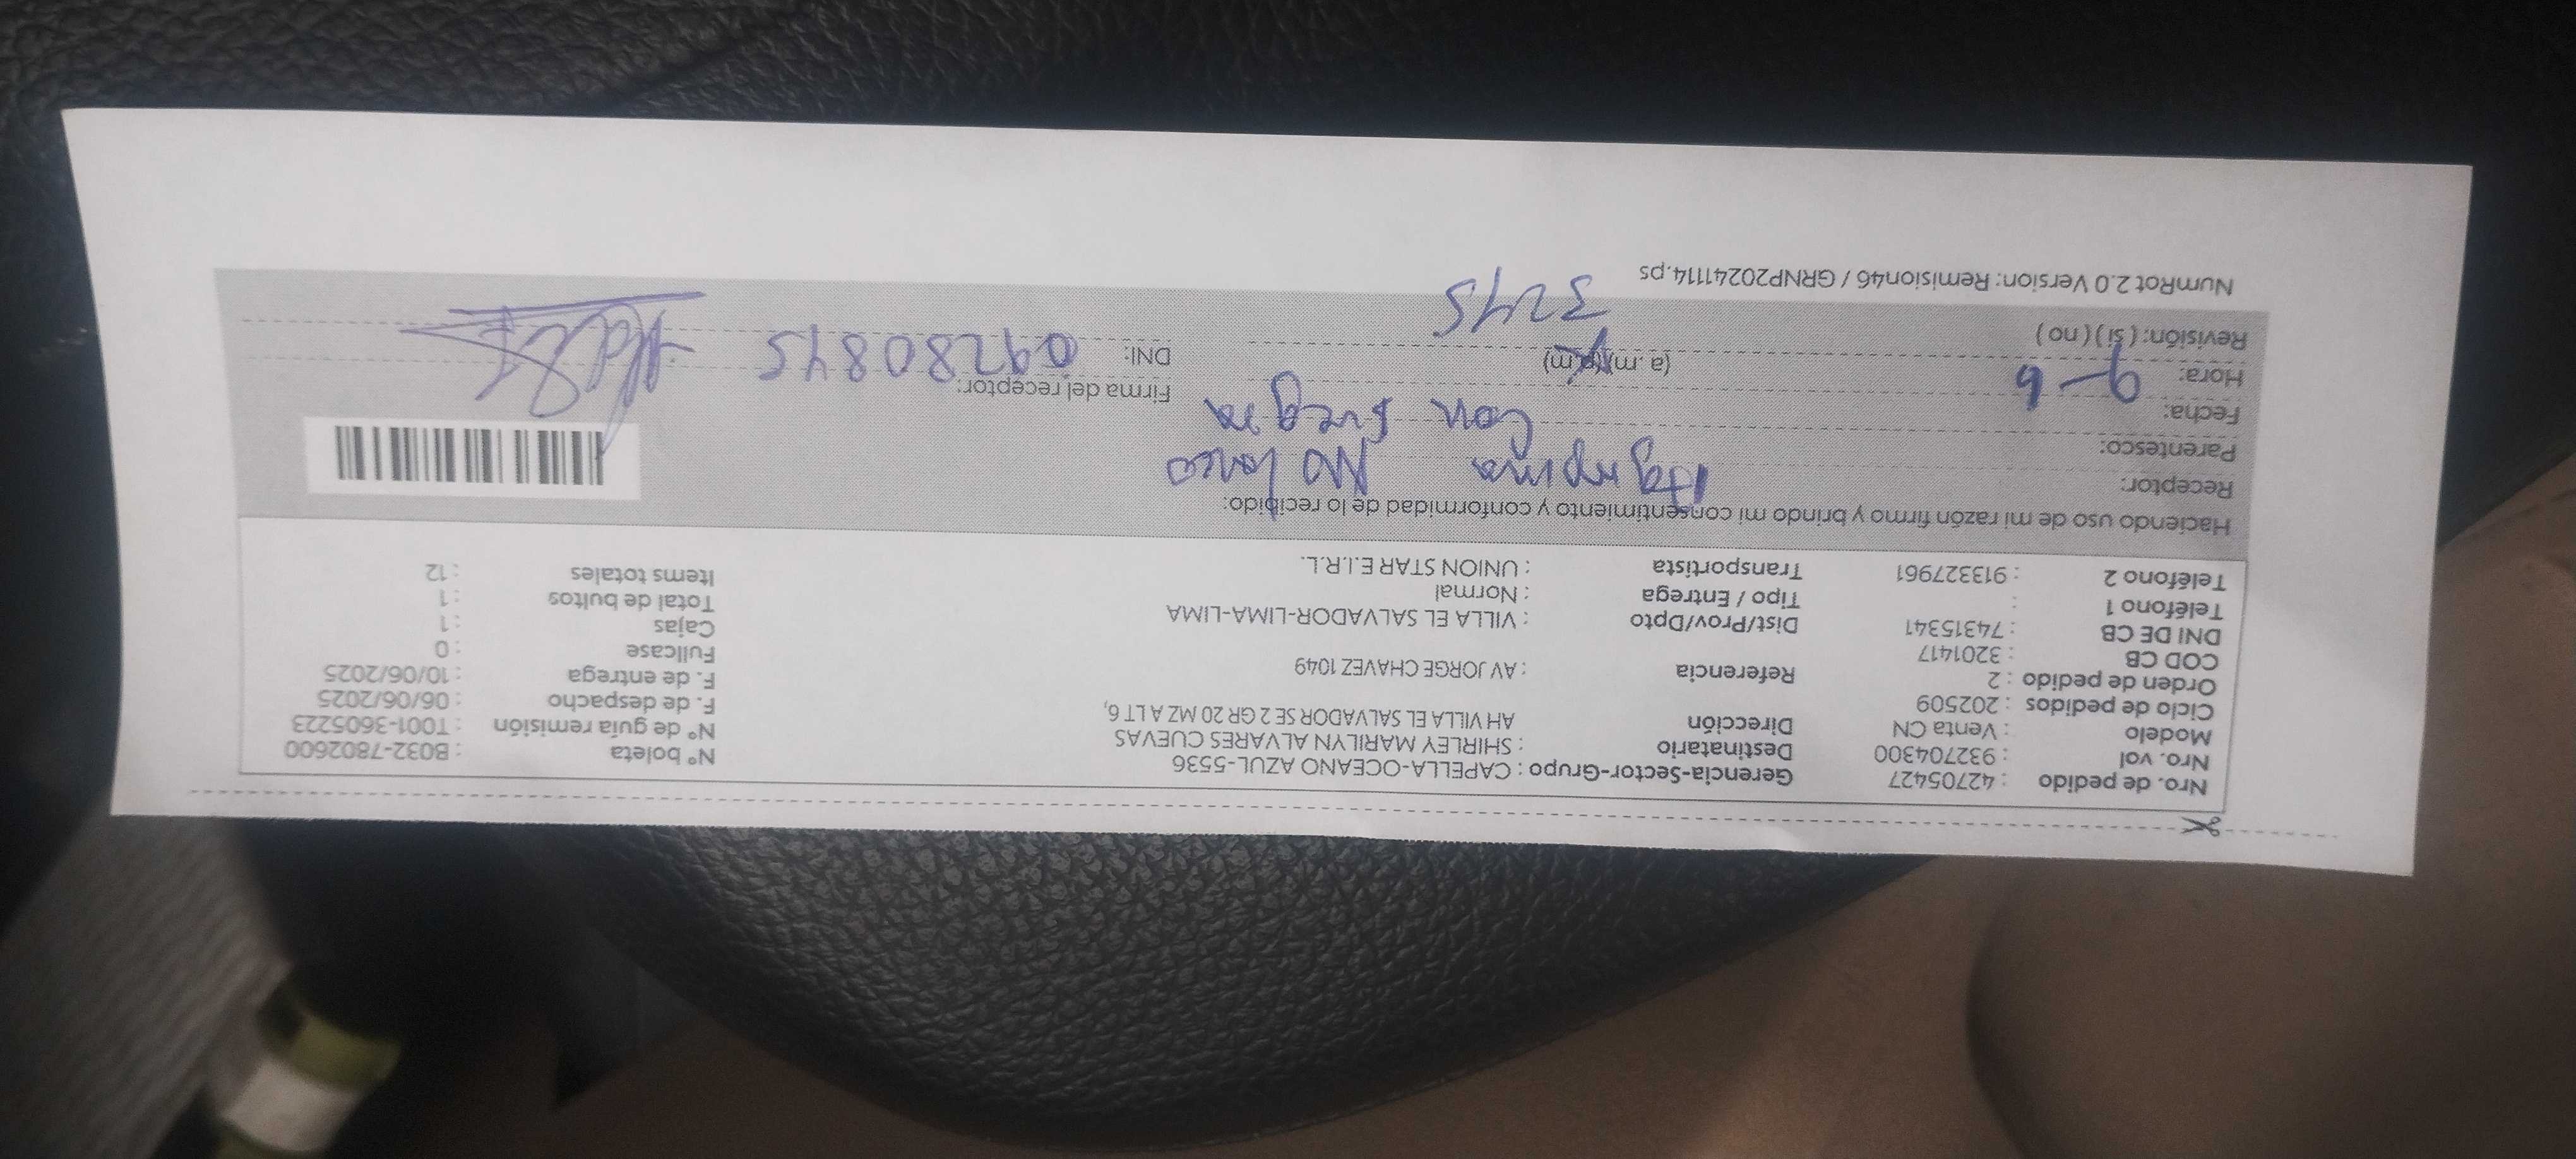 Nro. de pedido : 42705427 Gerencia-Sector-Grupo : CAPELLA-OCEANO AZUL-5536 N° boleta : B032-7802600
Nro. vol : 932704300 Destinatario : SHIRLEY MARILYN ALVARES CUEVAS N° de guía remisión : T001-3605223
Modelo : Venta CN Dirección AH VILLA EL SALVADOR SE 2 GR 20 MZ A LT 6, F. de despacho : 06/06/2025
Ciclo de pedidos : 202509 F. de entrega : 10/06/2025
Orden de pedido : 2 Referencia : AV JORGE CHAVEZ 1049 Fullcase : 0
COD CB : 3201417 Cajas : 1
DNI DE CB : 74315341 Dist/Prov/Dpto : VILLA EL SALVADOR-LIMA-LIMA Total de bultos : 1
Teléfono 1 : Tipo / Entrega : Normal Items totales : 12
Teléfono 2 : 913327961 Transportista : UNION STAR E.I.R.L.
Haciendo uso de mi razón firmo y brindo mi consentimiento y conformidad de lo recibido:
Receptor: Agripina
Parentesco: con
Fecha: 9-6
Hora: (a.m)(p.m) Firma del receptor:
Revisión: ( si ) ( no ) 3245 DNI: 09280845
NumRot 2.0 Version: Remision46 / GRNP20241114.ps